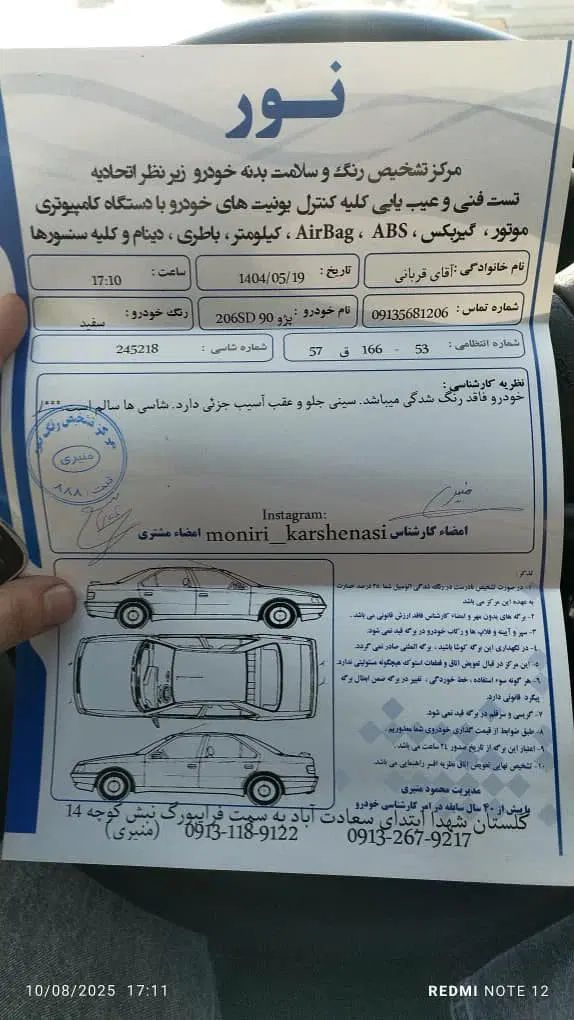 نور
مرکز تشخیص رنگ و سلامت بدنه خودرو زیر نظر اتحادیه
تست فنی و عیب یابی کلیه کنترل یونیت های خودرو با دستگاه کامپیوتری
موتور ، گیربکس ، AirBag ، ABS ، کیلومتر ، باطری ، دینام و کلیه سنسورها
نام خانوادگی : آقای قربانی تاریخ : 1404/05/19 ساعت : 17:10
شماره تماس : 09135681206 نام خودرو : پژو 206SD 90 رنگ خودرو : سفید
شماره انتظامی : 53 - 166 ق 57 شماره شاسی : 245218
نظریه کارشناسی :
خودرو فاقد رنگ شدگی میباشد. سینی جلو و عقب آسیب جزئی دارد. شاسی ها سالم است ***/
مرکز تشخیص رنگ نور
منیری
Instagram:
امضاء کارشناس moniri_karshenasi امضاء مشتری
تذکر :
۱- در صورت تشخیص نادرست در رنگ شدگی اتومبیل شما ۲۵ درصد خسارت
به عهده این مرکز می باشد
۲- برگه های بدون مهر و امضاء کارشناس فاقد ارزش قانونی می باشد .
۳- سپر و آینه و قلاب ها و رکاب خودرو در برگه قید نمی شود.
۴- در نگهداری این برگه کوشا باشید ، برگه المثنی صادر نمی گردد.
۵- این مرکز در قبال تعویض اتاق و قطعات استوک هیچگونه مسئولیتی ندارد.
۶- هر گونه سوء استفاده ، خط خوردگی ، تغییر در برگه ضمن ابطال برگه
پیگرد قانونی دارد.
۷- گریسی و سرقلم در برگه قید نمی شود.
۸- طبق ضوابط از قیمت گذاری خودروی شما معذوریم .
۹- اعتبار این برگه از تاریخ صدور ۲۴ ساعت می باشد .
۱۰- تشخیص نهایی تعویض اتاق نظریه افسر راهنمایی می باشد.
مدیریت محمود منیری
با بیش از ۳۰ سال سابقه در امر کارشناسی خودرو
گلستان شهدا ابتدای سعادت آباد به سمت فرایبورگ نبش کوچه 14
0913-267-9217 0913-118-9122 (منیری)
10/08/2025 17:11
REDMI NOTE 12